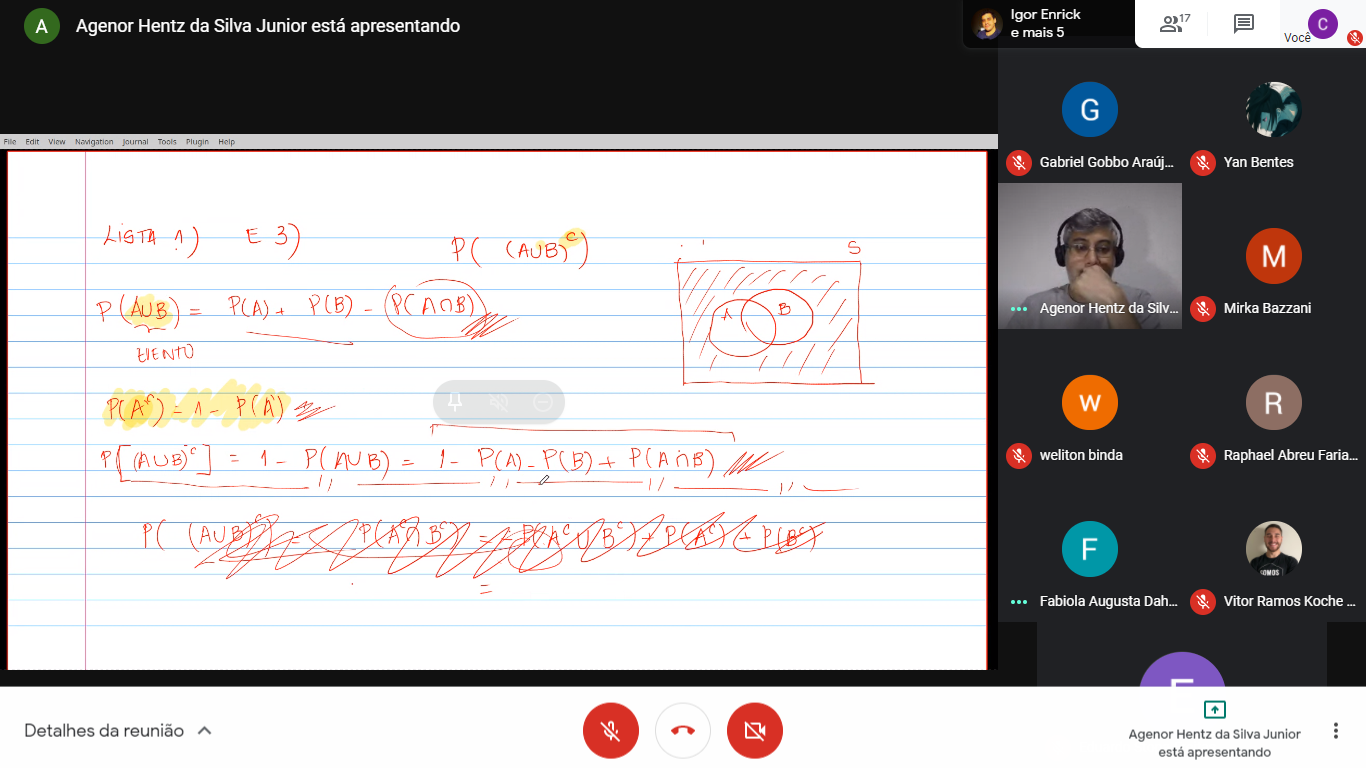 A Agenor Hentz da Silva Junior está apresentando
Igor Enrick
e mais 5
17
Você
C
File Edit View Navigation Journal Tools Plugin Help
LISTA 1) E 3)
P( (A∪B)ᶜ)
S
A B
P(A∪B) = P(A) + P(B) - P(A∩B)
P(Aᶜ) = 1 - P(A)
P[(A∪B)ᶜ] = 1 - P(A∪B) = 1 - P(A) - P(B) + P(A∩B)
P( (A∪B)ᶜ) = P(Aᶜ∩Bᶜ) = - P(Aᶜ∪Bᶜ) + P(Aᶜ) + P(Bᶜ)
=
G
Gabriel Gobbo Araúj...
Yan Bentes
Agenor Hentz da Silv...
M
Mirka Bazzani
w
weliton binda
R
Raphael Abreu Faria...
F
Fabiola Augusta Dah...
SOMOS
Vitor Ramos Koche ...
Detalhes da reunião
Agenor Hentz da Silva Junior
está apresentando